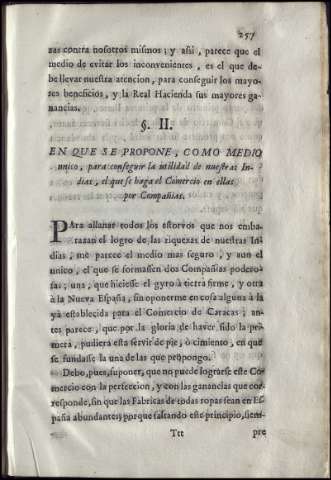 257
zas contra nosotros mismos; y assi, parece que el
medio de evitar los inconvenientes, es el que de-
be llevar nuestra atencion, para conseguir los mayo-
res beneficios, y la Real Hacienda sus mayores ga-
nancias.
§. II.
EN QUE SE PROPONE, COMO MEDIO
unico, para conseguir la utilidad de nuestras In-
dias, el que se haga el Comercio en ellas
por Compañias.
PAra allanar todos los estorvos que nos emba-
razan el logro de las riquezas de nuestras In-
dias, me parece el medio mas seguro, y aun el
unico, el que se formassen dos Compañias podero-
sas; una, que hiciesse el gyro à tierra firme, y otra
à la Nueva España, sin oponerme en cosa alguna à la
yà establecida para el Comercio de Caracas; an-
tes parece, que por la gloria de haver sido la pri-
mera, pudiera esta servir de pie, ò cimiento, en que
se fundasse la una de las que propongo.
Debo, pues, suponer, que no puede lograrse este Co-
mercio con la perfeccion, y con las ganancias que cor-
responde, sin que las Fabricas de todas ropas sean en Es-
paña abundantes; porque faltando este principio, siem-
Ttt pre